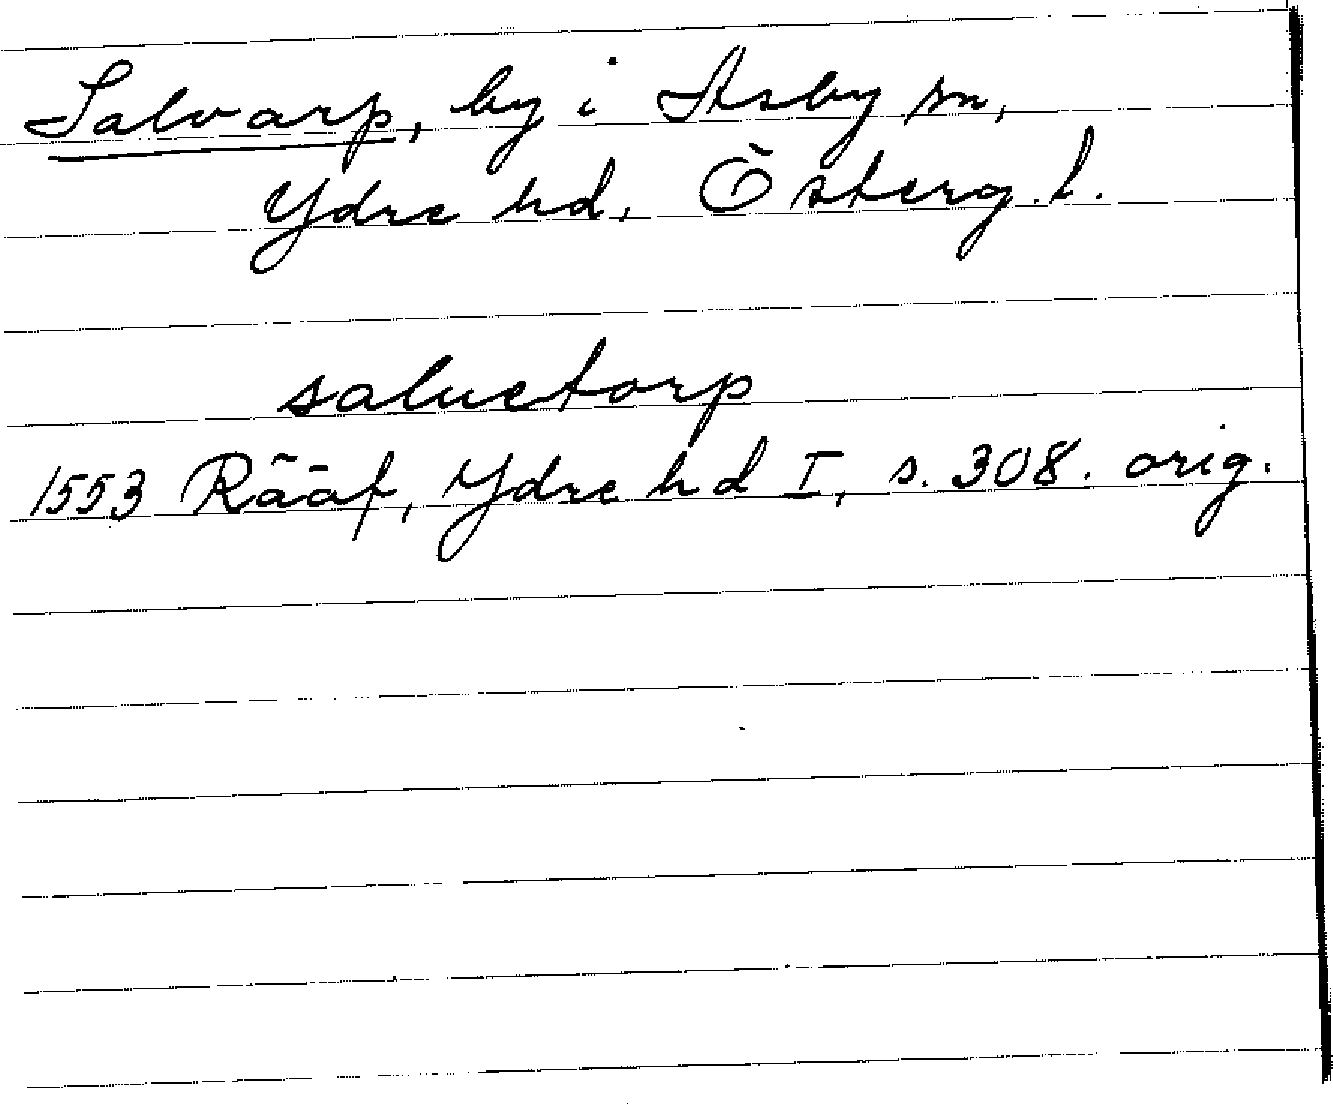 Salvarp, by i Asby sn,
Ydre hd, Österg. l.
saluetorp
1553 Rääf, Ydre hd I, s. 308. orig.